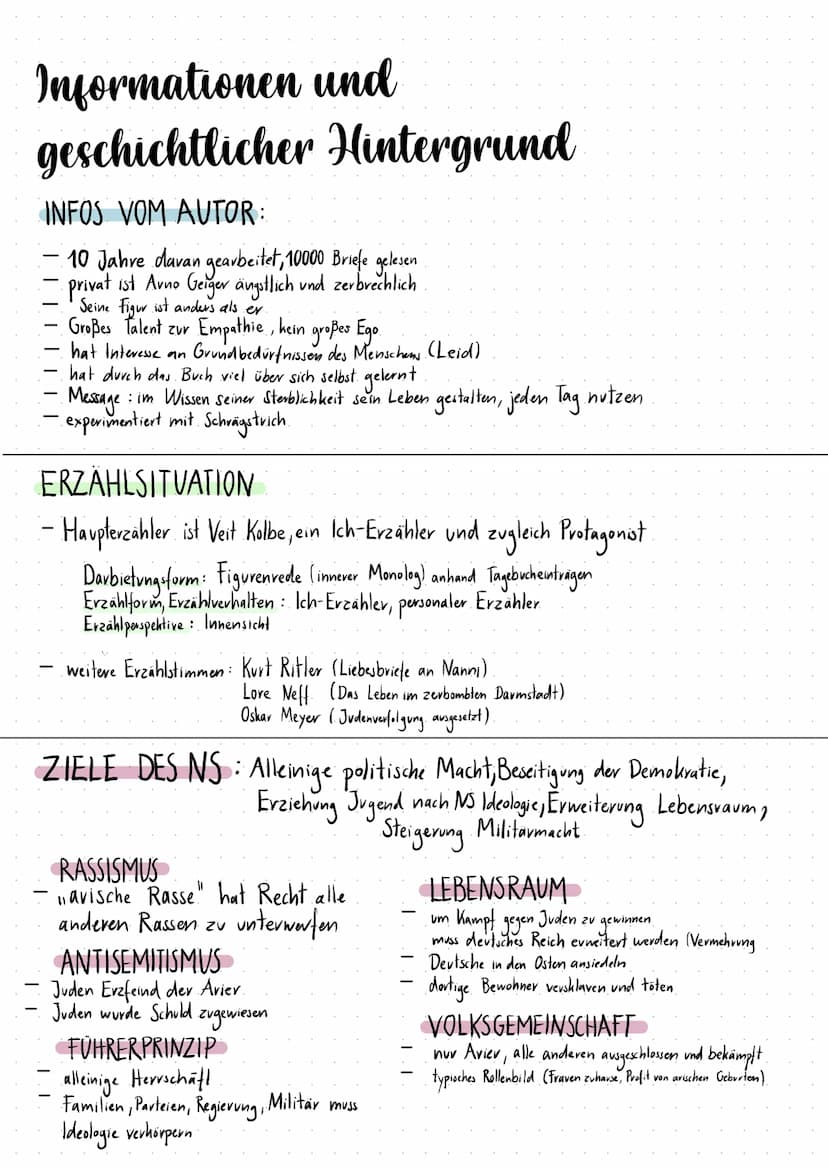 Informationen und
geschichtlicher Hintergrund
INFOS VOM AUTOR:
- 10 Jahre davan gearbeitet, 10000 Briefe gelesen
- privat ist Arno Geiger ängstlich und zerbrechlich
- Seine Figur ist anders als er
- Großes Talent zur Empathie, kein großes Ego
- hat Interesse an Grundbedürfnissen des Menschens (Leid)
- hat durch das Buch viel über sich selbst gelernt
- Message: im Wissen seiner Sterblichkeit sein Leben gestalten, jeden Tag nutzen
- experimentiert mit Schrägstrich
ERZÄHLSITUATION
- Haupterzähler ist Veit Kolbe, ein Ich-Erzähler und zugleich Protagonist
Darbietungsform: Figurenrede (innerer Monolog) anhand Tagebucheinträgen
Erzählform, Erzählverhalten: Ich-Erzähler, personaler Erzähler
Erzählperspektive: Innensicht
- weitere Erzählstimmen: Kurt Ritler (Liebesbriefe an Nanni)
Lore Neff (Das Leben im zerbombten Darmstadt)
Oskar Meyer (Judenverfolgung ausgesetzt)
ZIELE DES NS: Alleinige politische Macht, Beseitigung der Demokratie,
Erziehung Jugend nach NS Ideologie, Erweiterung Lebensraum,
Steigerung Militärmacht
RASSISMUS
- "arische Rasse" hat Recht alle
anderen Rassen zu unterwerfen
ANTISEMITISMUS
- Juden Erzfeind der Arier
- Juden wurde Schuld zugewiesen
FÜHRERPRINZIP
- alleinige Herrschaft
- Familien, Parteien, Regierung, Militär muss
Ideologie verkörpern
LEBENSRAUM
- um Kampf gegen Juden zu gewinnen
muss deutsches Reich erweitert werden (Vermehrung
- Deutsche in den Osten ansiedeln
- dortige Bewohner versklaven und töten
VOLKSGEMEINSCHAFT
- nur Arier, alle anderen ausgeschlossen und bekämpft
- typisches Rollenbild (Frauen zuhause, Profit von arischen Geburten)